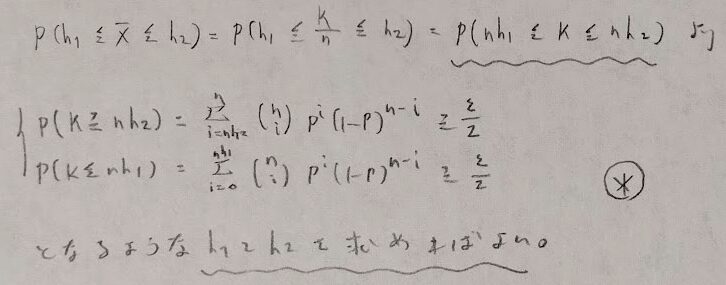 P(h₁ ≦ X̄ ≦ h₂) = P(h₁ ≦ K/n ≦ h₂) = P(nh₁ ≦ K ≦ nh₂) より
{ P(K ≧ nh₂) = Σ_{i=nh₂}^{n} (n i) pⁱ(1-p)ⁿ⁻ⁱ ≧ ε/2
P(K ≦ nh₁) = Σ_{i=0}^{nh₁} (n i) pⁱ(1-p)ⁿ⁻ⁱ ≧ ε/2 (*)
となるような h₁ と h₂ を求めればよい。